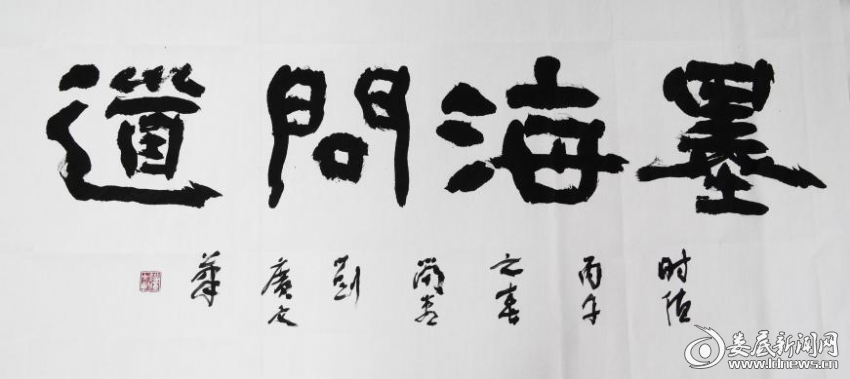 墨海問道
时值
丙午
之春
廣文
娄底新闻网
www.ldnews.cn